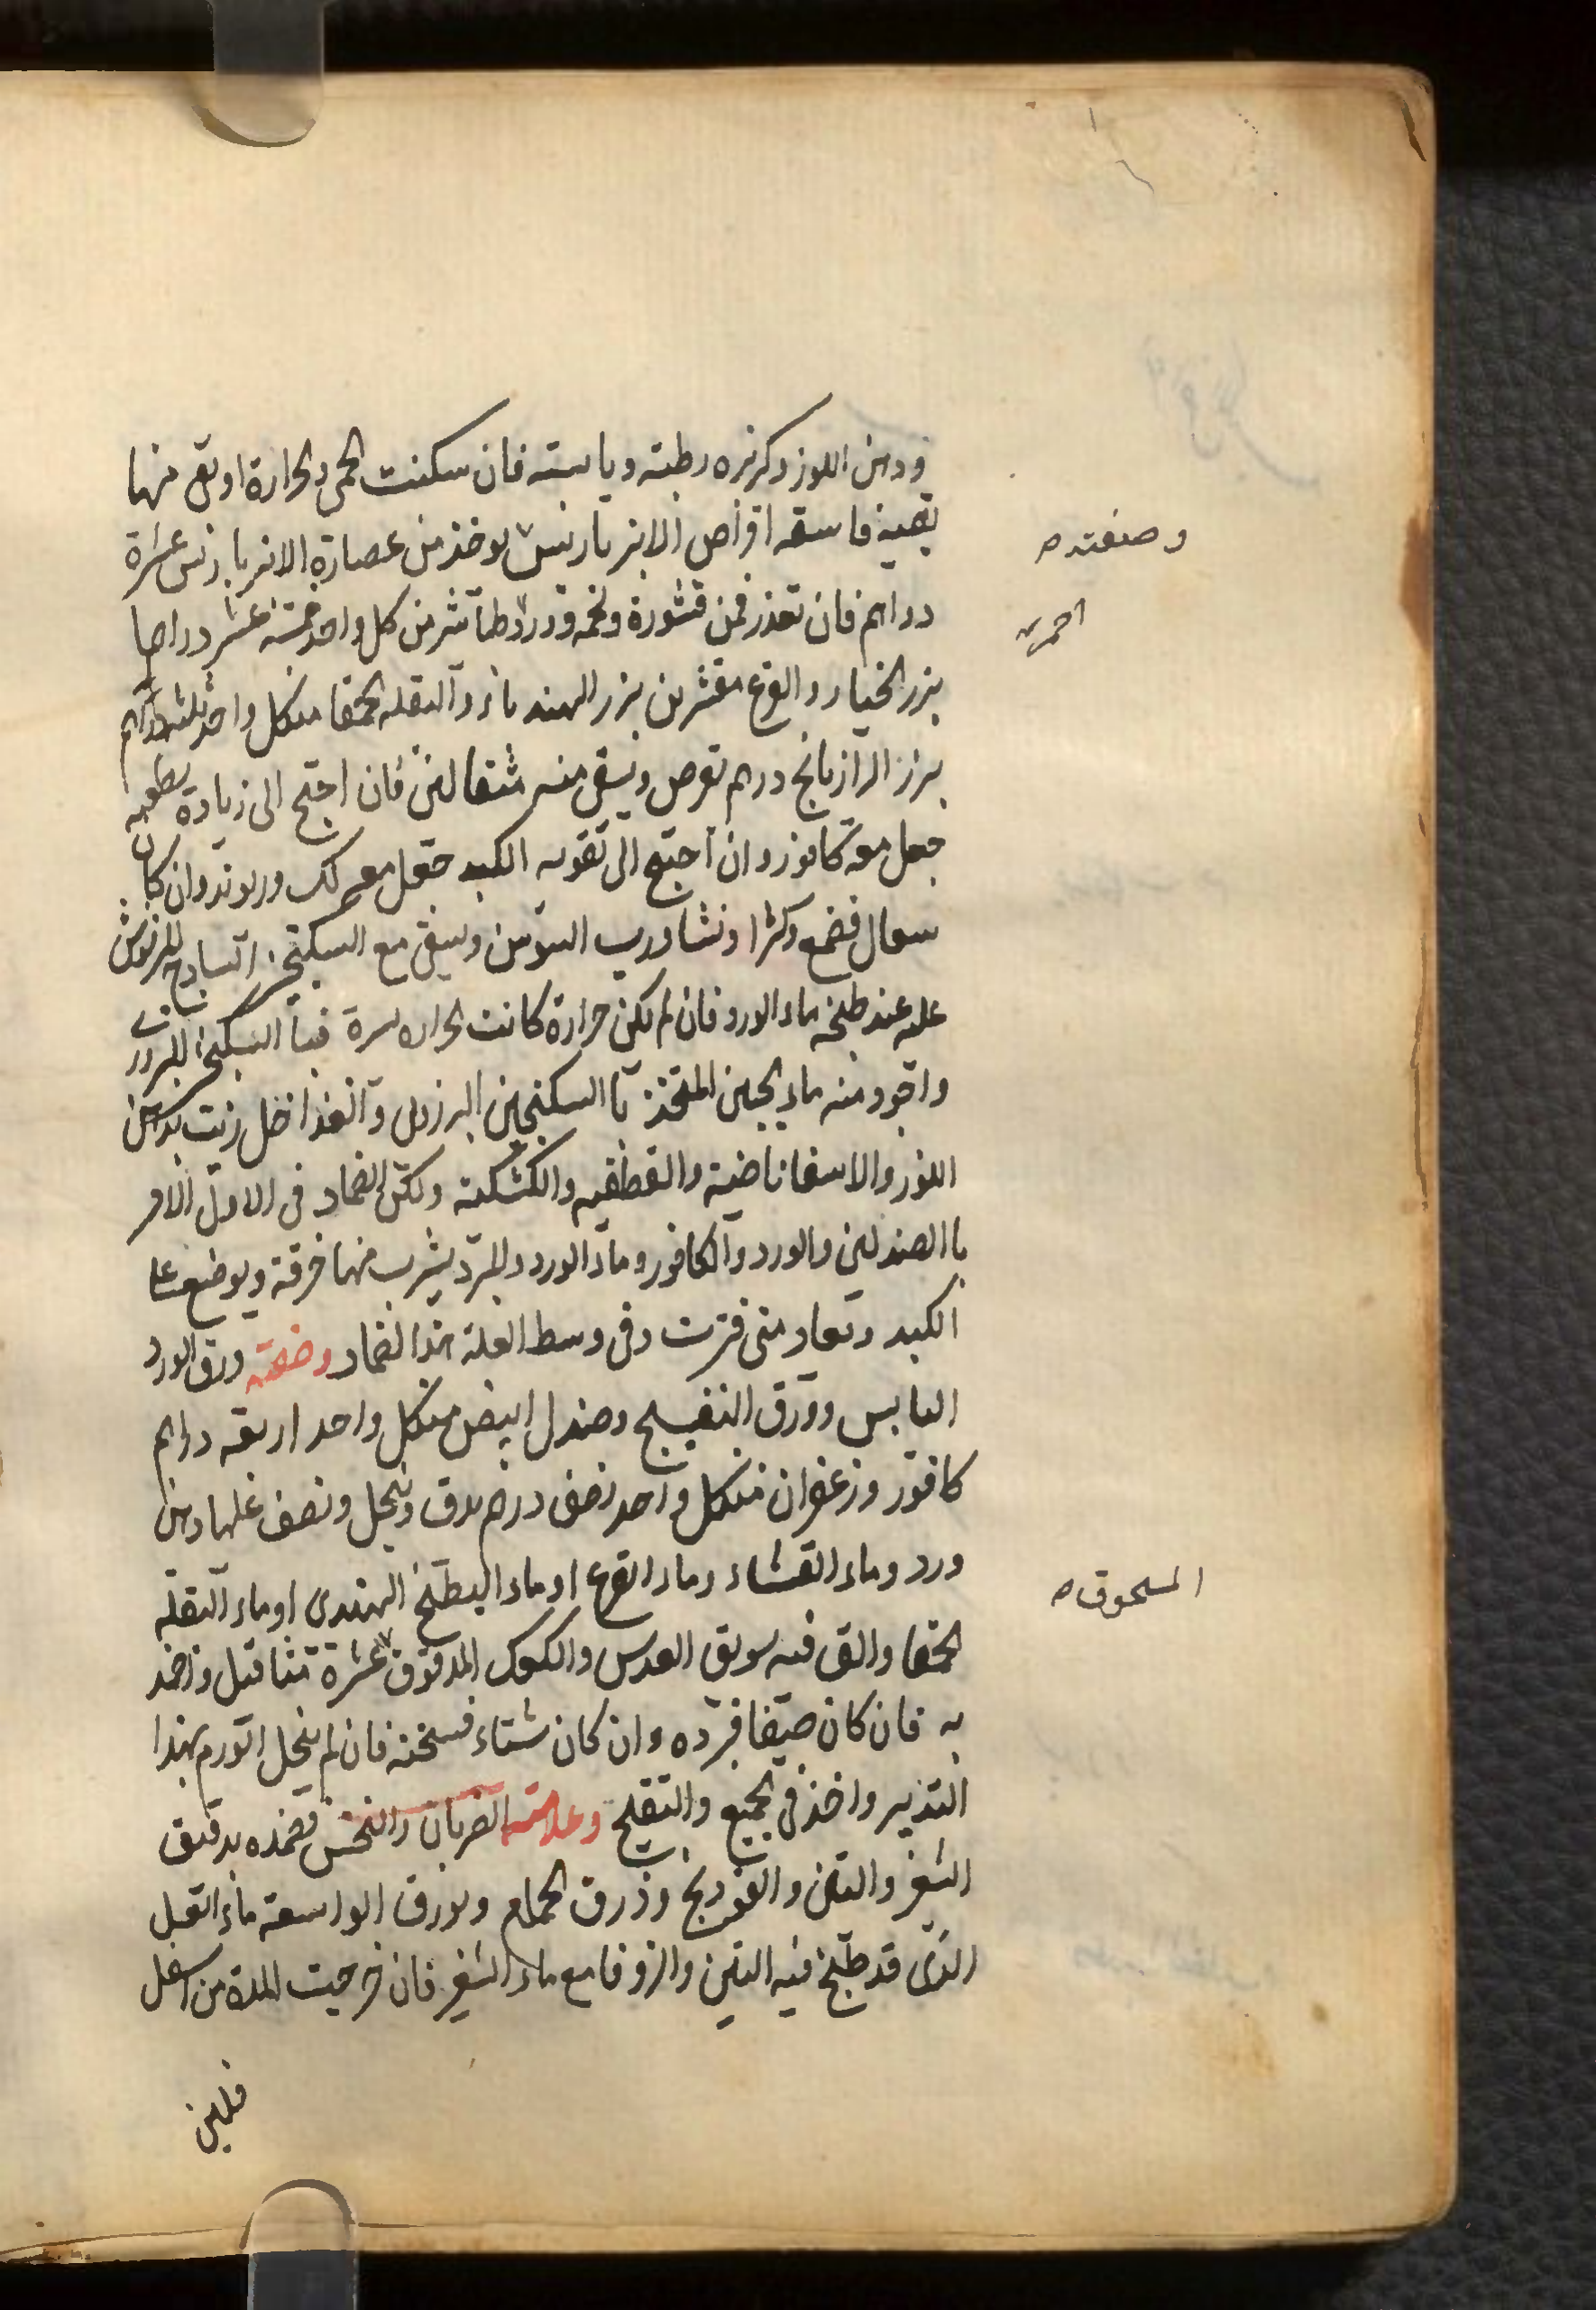 ودهن اللوز وكزبره رطبته ويابسته فان سكنت الحمى والحرارة او بقى منها
بقية فاسقه اقراص الانبرباريس يوخذ من عصارة الانبرباريس عشرة
وصفته صح
دراهم فان تعذر فمن قشورة ولحمه وورد وطباشير من كل واحد خمسة عشر دراهما
احمر صح
بزر الخيار والقرع مقشرين بزر الهندباء والبقله الحمقا من كل واحد ثلثة دراهم
بزر الرازيانج درهم تقرص ويسقى منه مثقالين فان احتيج الى زيادة تطفيه
جعل معه كافور وان احتيج الى تقويه الكبد جعل معه لك وريوند وان كان
سعال فصمغ وكثيرا ونشا ورب السوس ويسقى مع السكنجبين الساذج المرشوش
عليه عند طبخه ماء الورد فان لم تكن حرارة كانت الحراره يسيرة فبا السكنجبين البزوري
واجود منه ماء الجبن المتخذ با السكنجبين البزوري والغذا خل زيت بدهن
اللوز والاسفاناخية والقطفيه والكشكية وليكن الضماد في الاول الامر
با الصندلين والورد والكافور وماء الورد والمبرد يشرب منها خرقة ويوضع على
الكبد وتعاد متى فترت وفي وسط العلة هذا الضماد وصفته ورق الورد
اليابس وورق البنفسج وصندل ابيض من كل واحد اربعه دراهم
كافور وزعفران من كل واحد نصف درهم يدق وينخل ونصف عليها دهن
ورد وماء القثاء وماء القرع او ماء البطيخ الهندى او ماء البقله
الحمقا والق فيه سويق العدس والكعك المدقوق عشرة مثاقيل وضمد
المسحوق صح
به فان كان صيفا فبرده وان كان شتاء فسخنه فان لم ينحل الورم بهذا
التدبير واخذ في الجمع والتقيح وعلامته الضربان والنخس فضمده بدقيق
الشعير والتين والفودنج وذرق الحمام وبورق الواسقه ماء العسل
الذى قد طبخ فيه التين والزوفا مع ماء الشعير فان خرجت المدة من اسفل
فلين